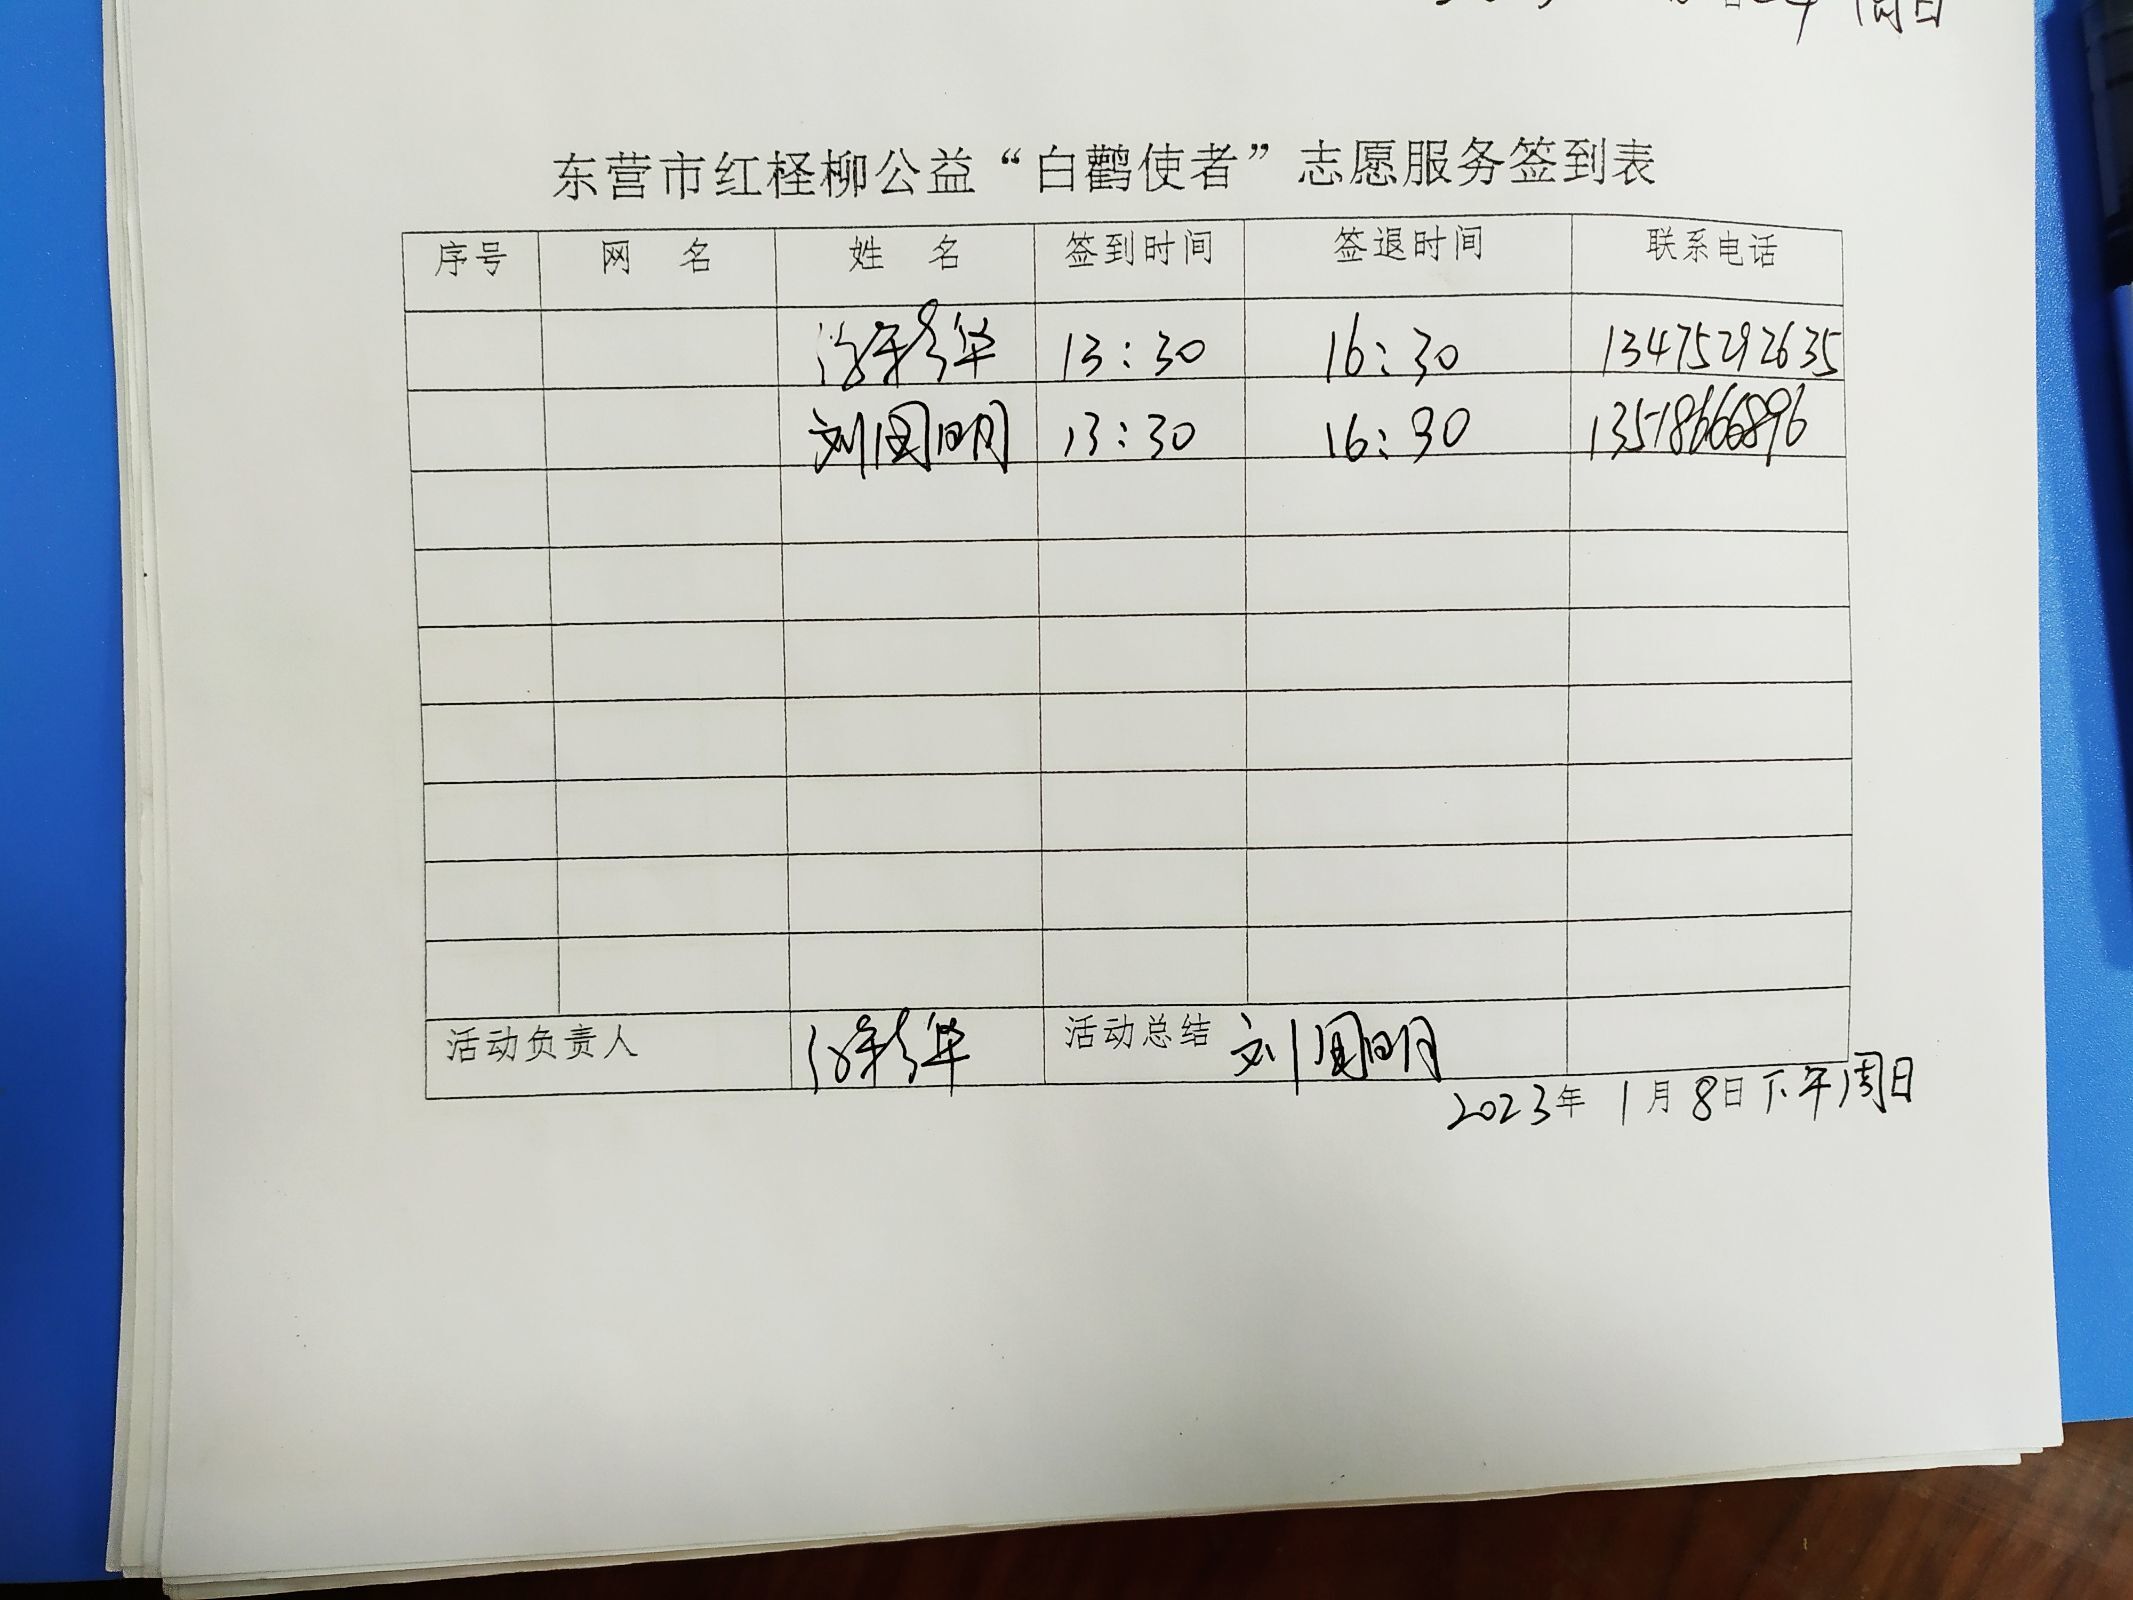 周日
东营市红柽柳公益“白鹳使者”志愿服务签到表
序号 网 名 姓 名 签到时间 签退时间 联系电话
徐秀华 13:30 16:30 13475292635
刘国明 13:30 16:30 13518666896
活动负责人 徐秀华 活动总结 刘国明
2023年 1月8日下午周日